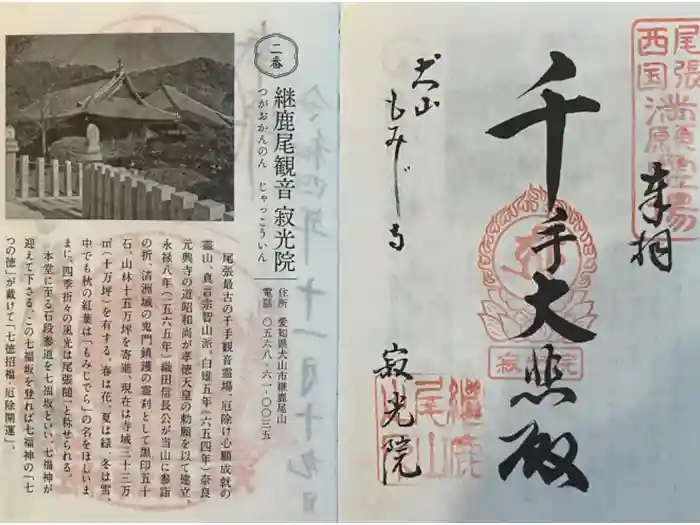 尾張
西国
奉拝
千手大悲殿
犬山
もみじ寺
寂光院
継鹿
尾山
寂光院
二番
継鹿尾観音 寂光院
つがおかんのん じゃっこういん
住所 愛知県犬山市継鹿尾山
電話 〇五六八-六一-〇〇三五
尾張最古の千手観音霊場、厄除け心願成就の
霊山。真言宗智山派。白雉五年(六五四年)奈良
元興寺の道昭和尚が孝徳天皇の勅願を以て建立。
永禄八年(一五六五年)織田信長公が当山に参詣
の折、清洲城の鬼門鎮護の霊刹として黒印五十
石・山林十五万坪を寄進。現在は寺域三十三万
㎡(十万坪)を有する。春は花、夏は緑、冬は雪、
中でも秋の紅葉は「もみじでら」の名をほしいま
まに、四季折々の風光は尾張随一と称せられる。
本堂に至る石段参道を七福坂といい、七福神が
迎えて下さる。この七福坂を登れば七福神の「七
つの徳」が戴けて「七徳招福・厄除開運」。
令和四年十一月十九日